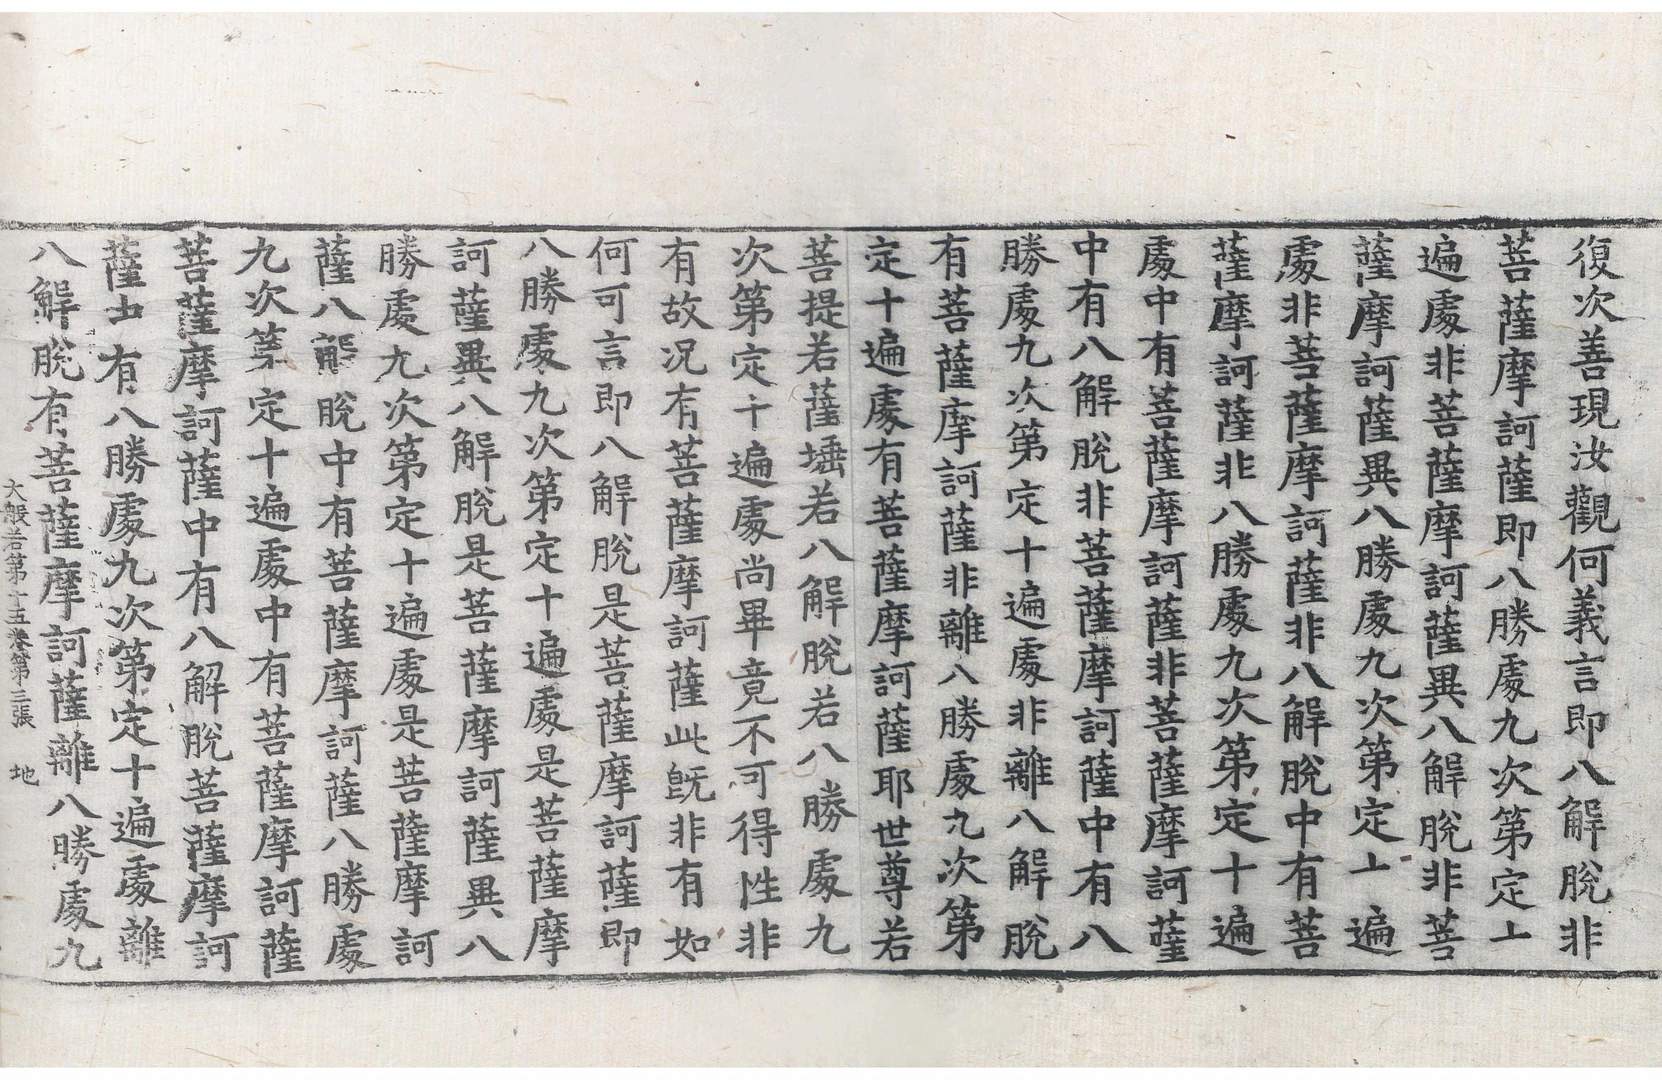 復次善現汝觀何義言即八解脫非
菩薩摩訶薩即八勝處九次第定十
遍處非菩薩摩訶薩異八解脫非菩
薩摩訶薩異八勝處九次第定十遍
處非菩薩摩訶薩非八解脫中有菩
薩摩訶薩非八勝處九次第定十遍
處中有菩薩摩訶薩非菩薩摩訶薩
中有八解脫非菩薩摩訶薩中有八
勝處九次第定十遍處非離八解脫
有菩薩摩訶薩非離八勝處九次第
定十遍處有菩薩摩訶薩耶世尊若
菩提若薩埵若八解脫若八勝處九
次第定十遍處尚畢竟不可得性非
有故况有菩薩摩訶薩此旣非有如
何可言即八解脫是菩薩摩訶薩即
八勝處九次第定十遍處是菩薩摩
訶薩異八解脫是菩薩摩訶薩異八
勝處九次第定十遍處是菩薩摩訶
薩八解脫中有菩薩摩訶薩八勝處
九次第定十遍處中有菩薩摩訶薩
菩薩摩訶薩中有八解脫菩薩摩訶
薩中有八勝處九次第定十遍處離
八解脫有菩薩摩訶薩離八勝處九
大般若第十五卷第三張 地